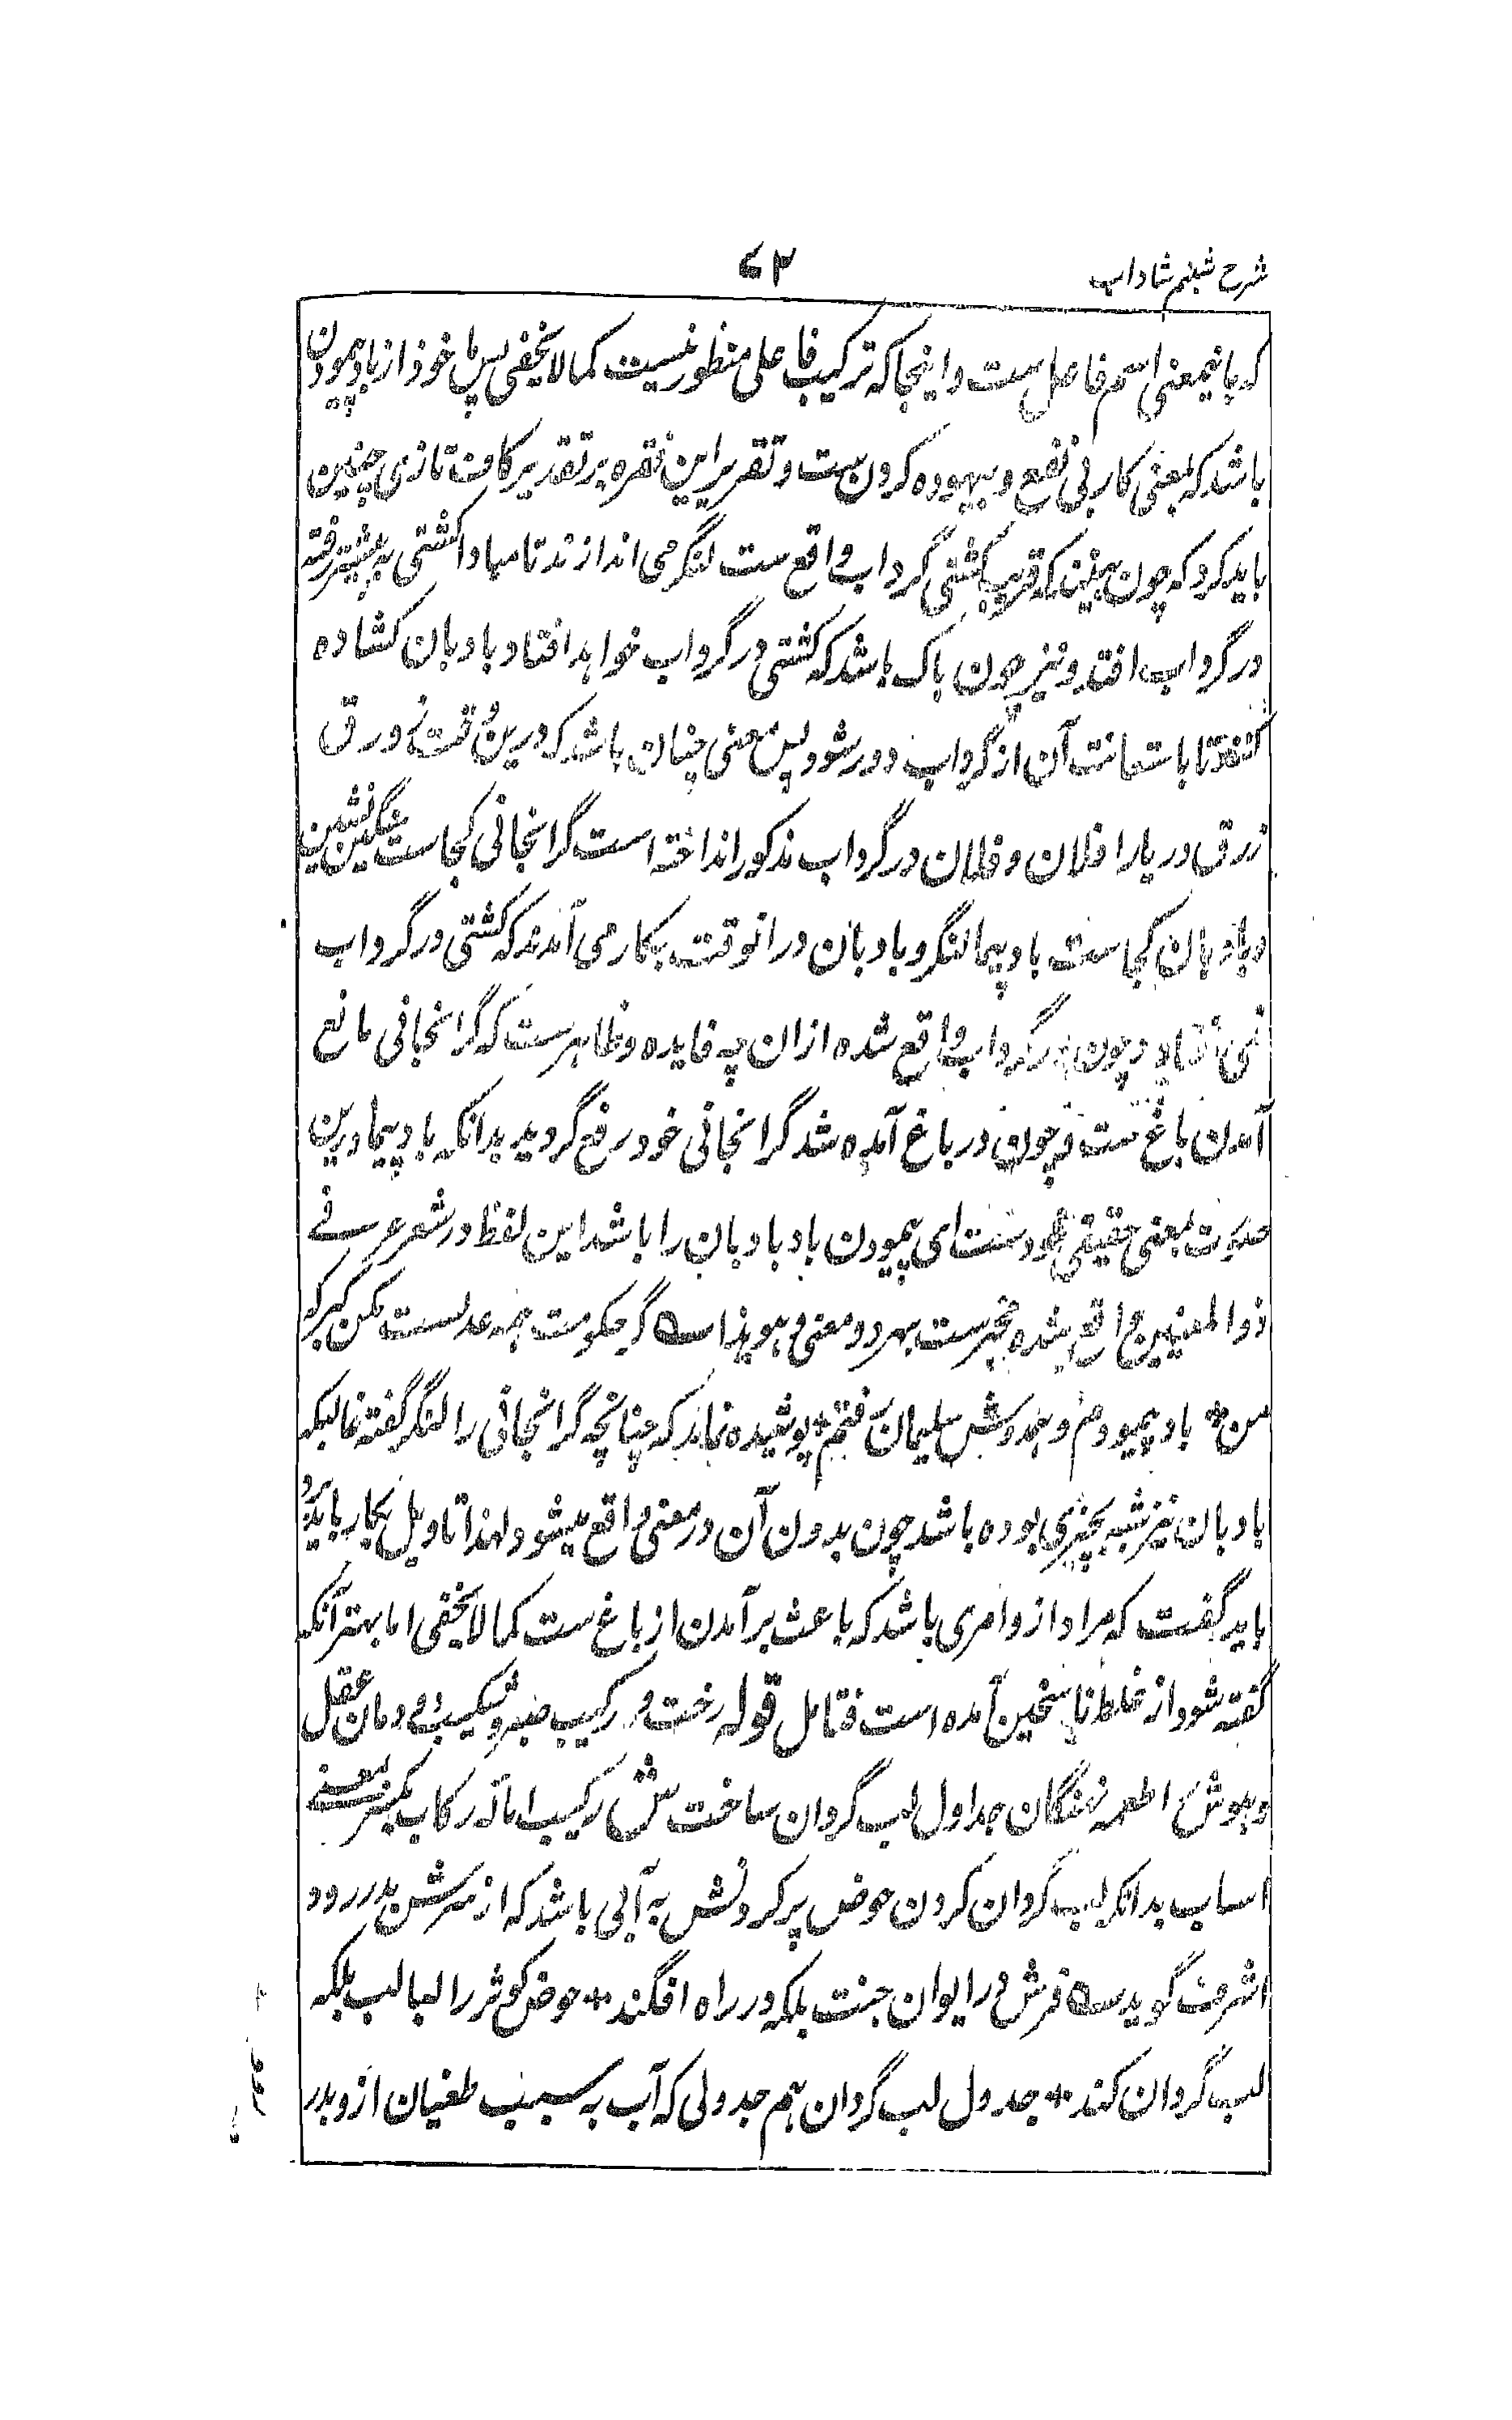 شرح شبنم شاداب
۷۳
که باینمعنی اسم فاعل ست و اینجا که ترکیب فاعلی منظور نیست کما لا یخفی پس ماخوذ از باد پیمودن
باشد که بمعنی کار بی نفع و بیهوده کردن ست و تقریر این فقره بر تقدیر کاف تازی چنین
باید کرد که چون بینند که قریب کشتی گرداب واقع ست لنگر می اندازند تا مبادا کشتی پیشتر رفته
در گرداب افتد و نیز چون باک باشد که کشتی در گرداب خواهد افتاد بادبان کشاده
کنند تا باستعانت آن از گرداب دور شود پس معنی چنان باشد که درین وقت زورق
زرق دریا را فلان و فلان در گرداب مذکور انداخته است گرانجانی کجاست سنگین نشین
و بادبان کجاست باد پیما لنگر و بادبان در انوقت بکار می آمدند که کشتی در گرداب
نمی افتاد و چون در گرداب واقع شده ازان چه فایده و ظاهرست که گرانجانی مانع
آمدن باغ ست و چون در باغ آمده شد گرانجانی خود رفع گردید بدانکه باد پیما درین
صورت بمعنی حقیقی خود ست ای پیمودن باد بادبان را باشد این لفظ در شعر عرفی
ذو المعنیین واقع شده بهر دو معنی هویداست گر حکومت همه عدلست مکن کبر که
من * باد پیمودم و همدوش سلیمان رفتم * پوشیده نماند که چنانچه گرانجانی را لنگر گفته غالبکه
بادبان نیز مشبه بچیزی بوده باشد چون بدون آن در معنی واقع میشود لهذا تاویل بکار باید برد
باید گفت که مراد ازو امری باشد که باعث برآمدن از باغ ست کما لا یخفی اما بهتر آنکه
گفته شود از غلط ناسخین آمده است فتامل قوله رخت و رکیب صبر و شکیب دودمان عقل
و هوش اطعمه نهنگان جداول لب گردان ساخت ش رکیب اماله رکاب بکسر بمعنی
اسباب بدانکه لب گردان کردن حوض پر کردنش به آبی باشد که از سرش بدر رود
اشرف گوید فرش در ایوان جنت بلکه در راه افگند * حوض کوثر را لبالب بلکه
لب گردان کند * جدول لب گردان هم جدولی که آب به سبب طغیان ازو بدر